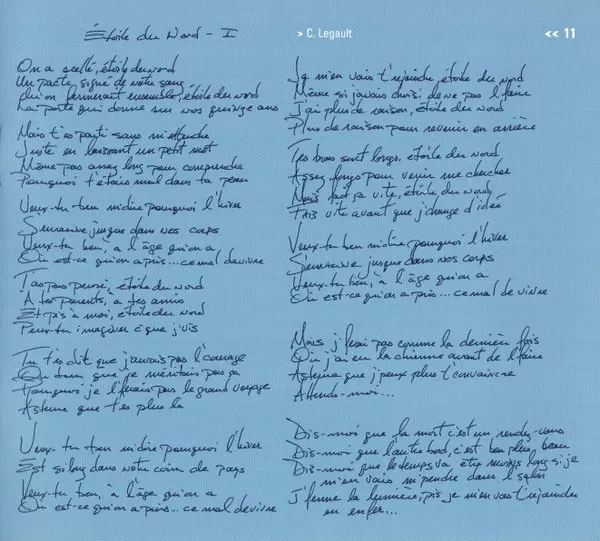 Étoile du Nord - I
> C. Legault
<< 11
On a scellé, étoile du nord
Un pacte, signé de notre sang
Qu'on fermerait ensemble, étoile du nord
La porte qui donne sur nos quinze ans
Mais t'es parti sans m'attendre
Juste en laissant un petit mot
Même pas assez long pour comprendre
Pourquoi t'étais mal dans ta peau
Veux-tu ben m'dire pourquoi l'hiver
S'enracine jusque dans nos corps
Veux-tu ben, à l'âge qu'on a
Où est-ce qu'on a pris... ce mal de vivre
T'as pas pensé, étoile du nord
À tes parents, à tes amis
Et pis à moi, étoile du nord
Peux-tu imaginer c'que j'vis
Tu t'es dit que j'aurais pas l'courage
Ou dans que je méritais pas ça
Pourquoi je l'ferais pas le grand voyage
Asteure que t'es plus là
Veux-tu ben m'dire pourquoi l'hiver
Est si long dans notre coin de pays
Veux-tu ben, à l'âge qu'on a
Où est-ce qu'on a pris... ce mal de vivre
Je m'en vais t'rejoindre, étoile du nord
Même si j'avais choisi de ne pas l'faire
J'ai plus de raison, étoile du nord
Plus de raison pour revenir en arrière
Tes bras sont longs, étoile du nord
Assez longs pour venir me chercher
Mais fait ça vite, étoile du nord
Fais vite avant que j'change d'idée
Veux-tu ben m'dire pourquoi l'hiver
S'enracine jusque dans nos corps
Veux-tu ben, à l'âge qu'on a
Où est-ce qu'on a pris... ce mal de vivre
Mais j'ferai pas comme la dernière fois
Où j'ai eu la chienne avant de l'faire
Asteure que j'peux plus t'convaincre
Attends-moi...
Dis-moi que la mort c'est un rendez-vous
Dis-moi que l'autre bord, c'est ben plus beau
Dis-moi que le temps va être moins long si je
m'en vais m'pendre dans l'salon
J'ferme la lumière, pis je m'en vas t'rejoindre
en enfer...